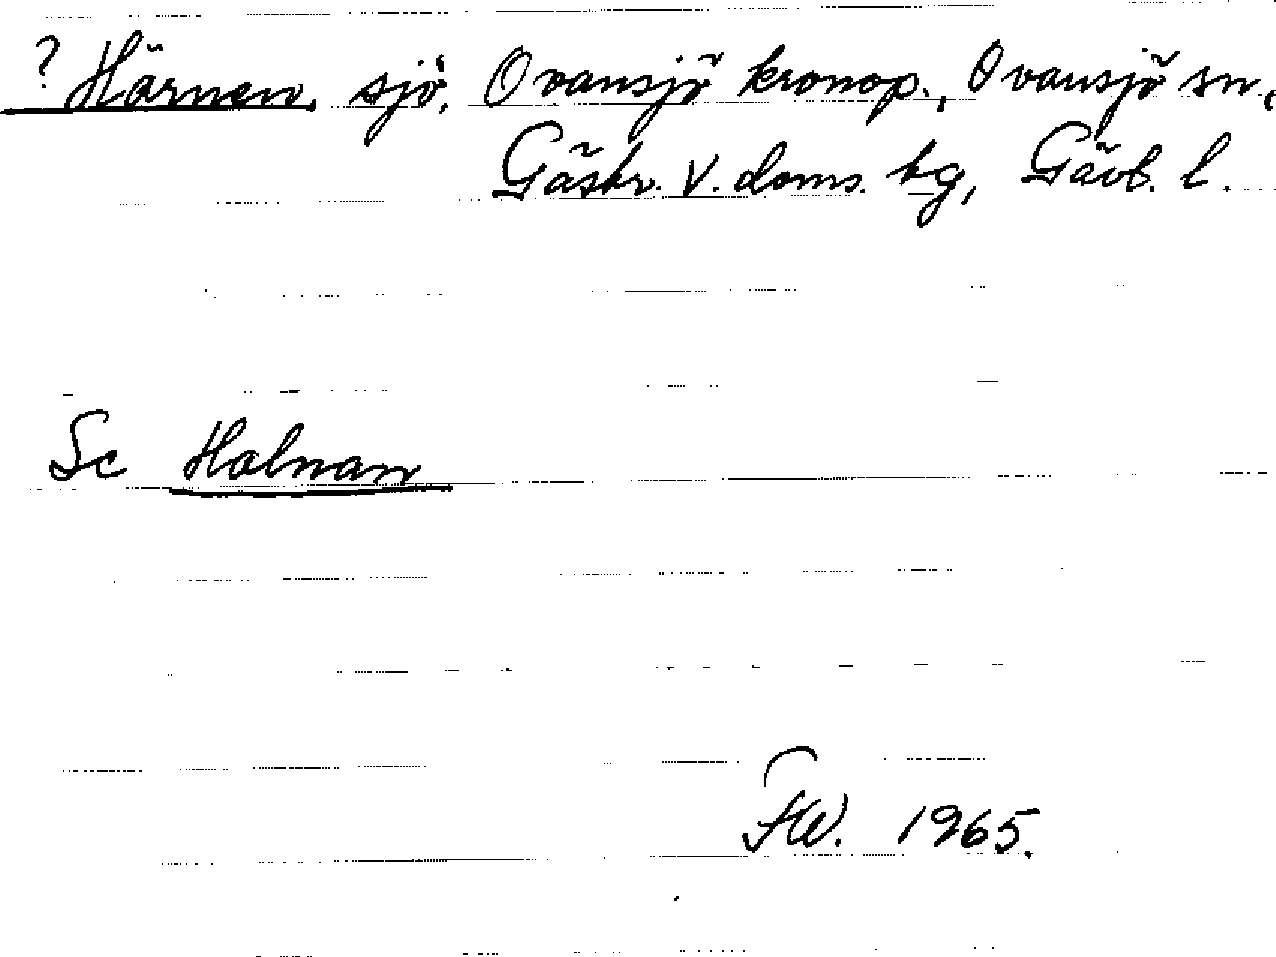 ? Härnen, sjö, Ovansjö kronop., Ovansjö sn,
Gästr. V. doms. tg, Gävl. l.
Se Holnan
FW. 1965.